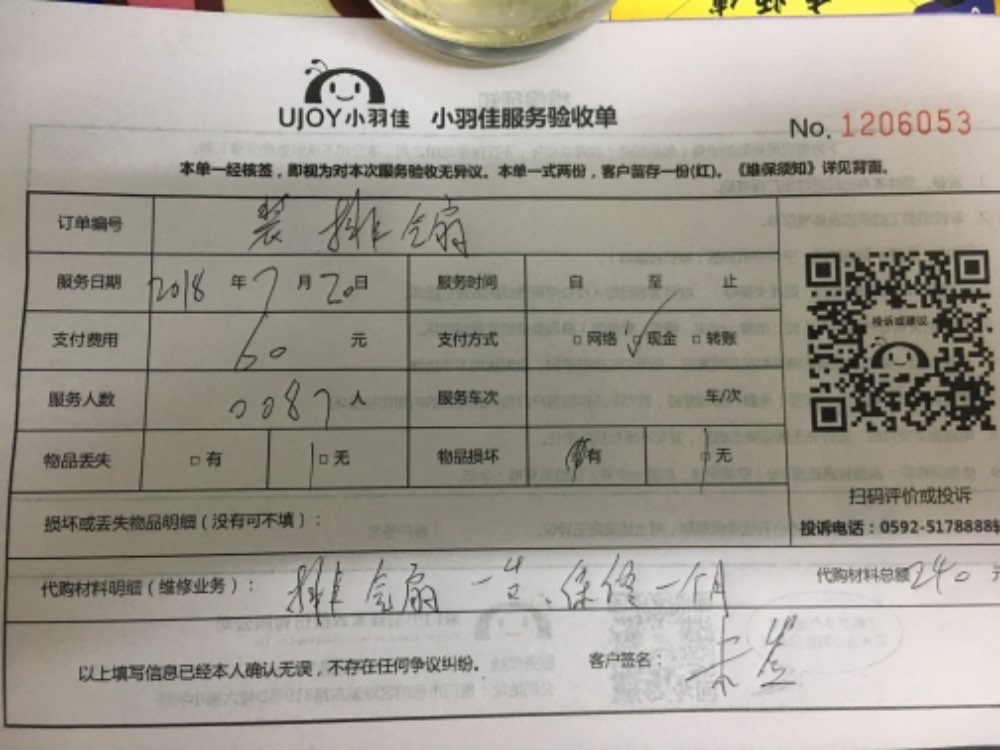 UJOY小羽佳 小羽佳服务验收单
No. 1206053
本单一经核签，即视为对本次服务验收无异议。本单一式两份，客户留存一份(红)。《维保须知》详见背面。
订单编号 装排气扇
服务日期 2018 年 7 月 20 日 服务时间 自 至 止
支付费用 60 元 支付方式 □网络 □现金 □转账
投诉或建议
服务人数 0087 人 服务车次 车/次
物品丢失 □有 □无 物品损坏 有 □无
扫码评价或投诉
损坏或丢失物品明细（没有可不填）：
投诉电话：0592-5178888转
代购材料明细（维修业务）： 排气扇一台.保修一个月 代购材料总额 240 元
以上填写信息已经本人确认无误，不存在任何争议纠纷。 客户签名：